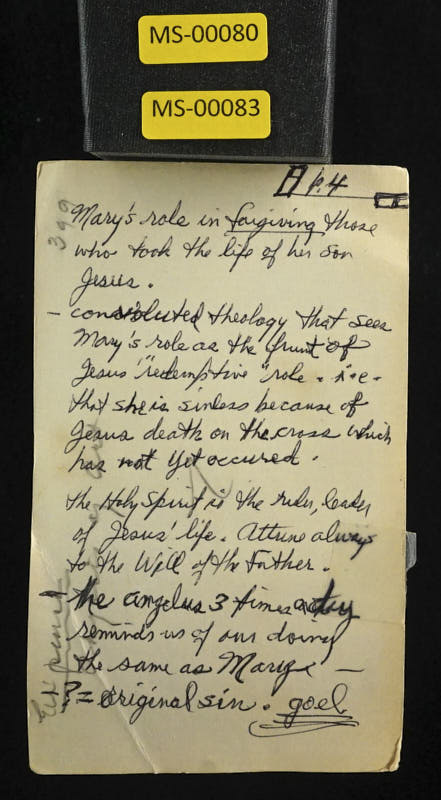 MS-00080
MS-00083
P.4
399
Mary's role in forgiving those
who took the life of her son
Jesus.
- convoluted theology that sees
Mary's role as the fruit of
Jesus' "redemptive" role. i.e.
that she is sinless because of
Jesus death on the cross which
has not yet occured.
the Holy Spirit is the rider, leader
of Jesus' life. Attune always
to the Will of the Father.
- the angelus 3 times a day
reminds us of our doing
the same as Mary. -
? = original sin. goel